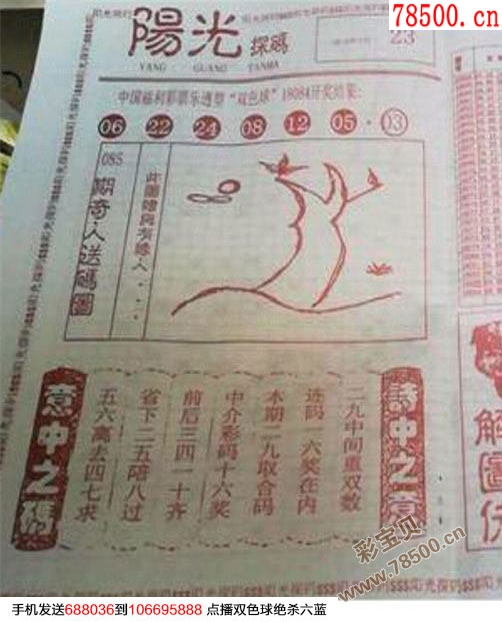 78500.cn
陽光
探碼
YANG GUANG TANMA
23
中国福利彩票乐透型“双色球”18084开奖结果：
06 22 24 08 12 05 · 03
085
期奇人送碼圖
此圖贈與有缘人····
意中之碼
詩中之意
二九中间重双数
连码一六奖在内
本期二九取合码
中介彩码十六奖
前后三四一十齐
省下二五陪八过
五六离去四七求
解圖
彩宝贝
www.78500.cn
手机发送688036到106695888 点播双色球绝杀六蓝